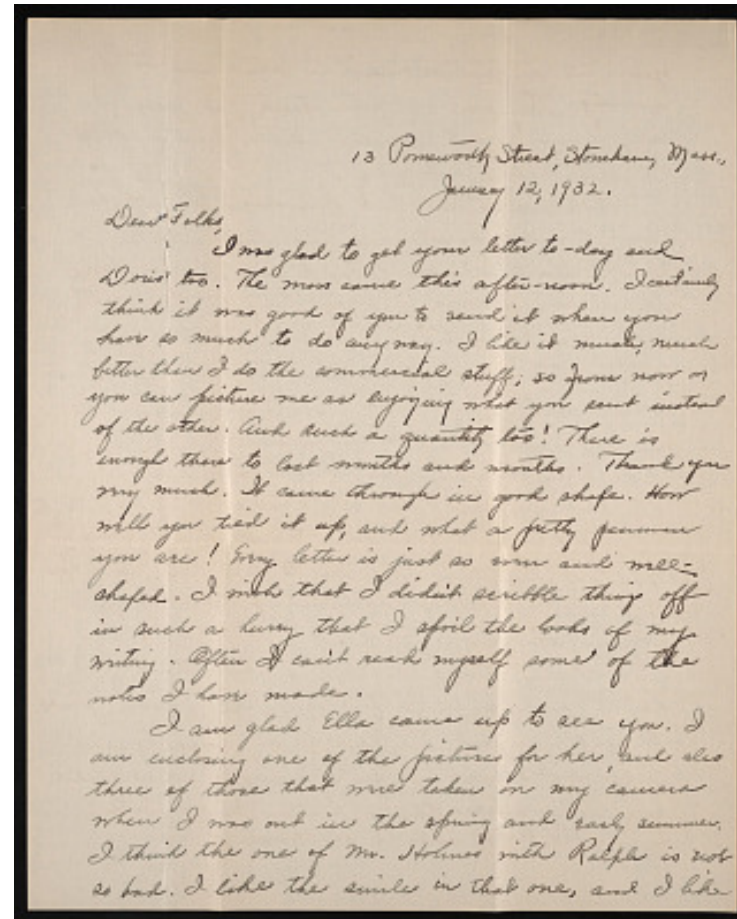 13 Pomeworth Street, Stoneham, Mass.,
January 12, 1932.
Dear Folks,
I was glad to get your letter to-day and
Doris' too. The moss came this after-noon. I certainly
think it was good of you to send it when you
have so much to do anyway. I like it much, much
better than I do the commercial stuff; so from now on
you can picture me as enjoying what you sent instead
of the other. And such a quantity too! There is
enough there to last months and months. Thank you
very much. It came through in good shape. How
well you tied it up, and what a pretty penman
you are! Every letter is just so even and well-
shaped. I wish that I didn't scribble things off
in such a hurry that I spoil the looks of my
writing. Often I can't read myself some of the
notes I have made.
I am glad Ella came up to see you. I
am enclosing one of the pictures for her, and also
three of those that were taken on my camera
when I was out in the spring and early summer.
I think the one of Mr. Holmes with Ralph is not
so bad. I like the smile in that one, and I like